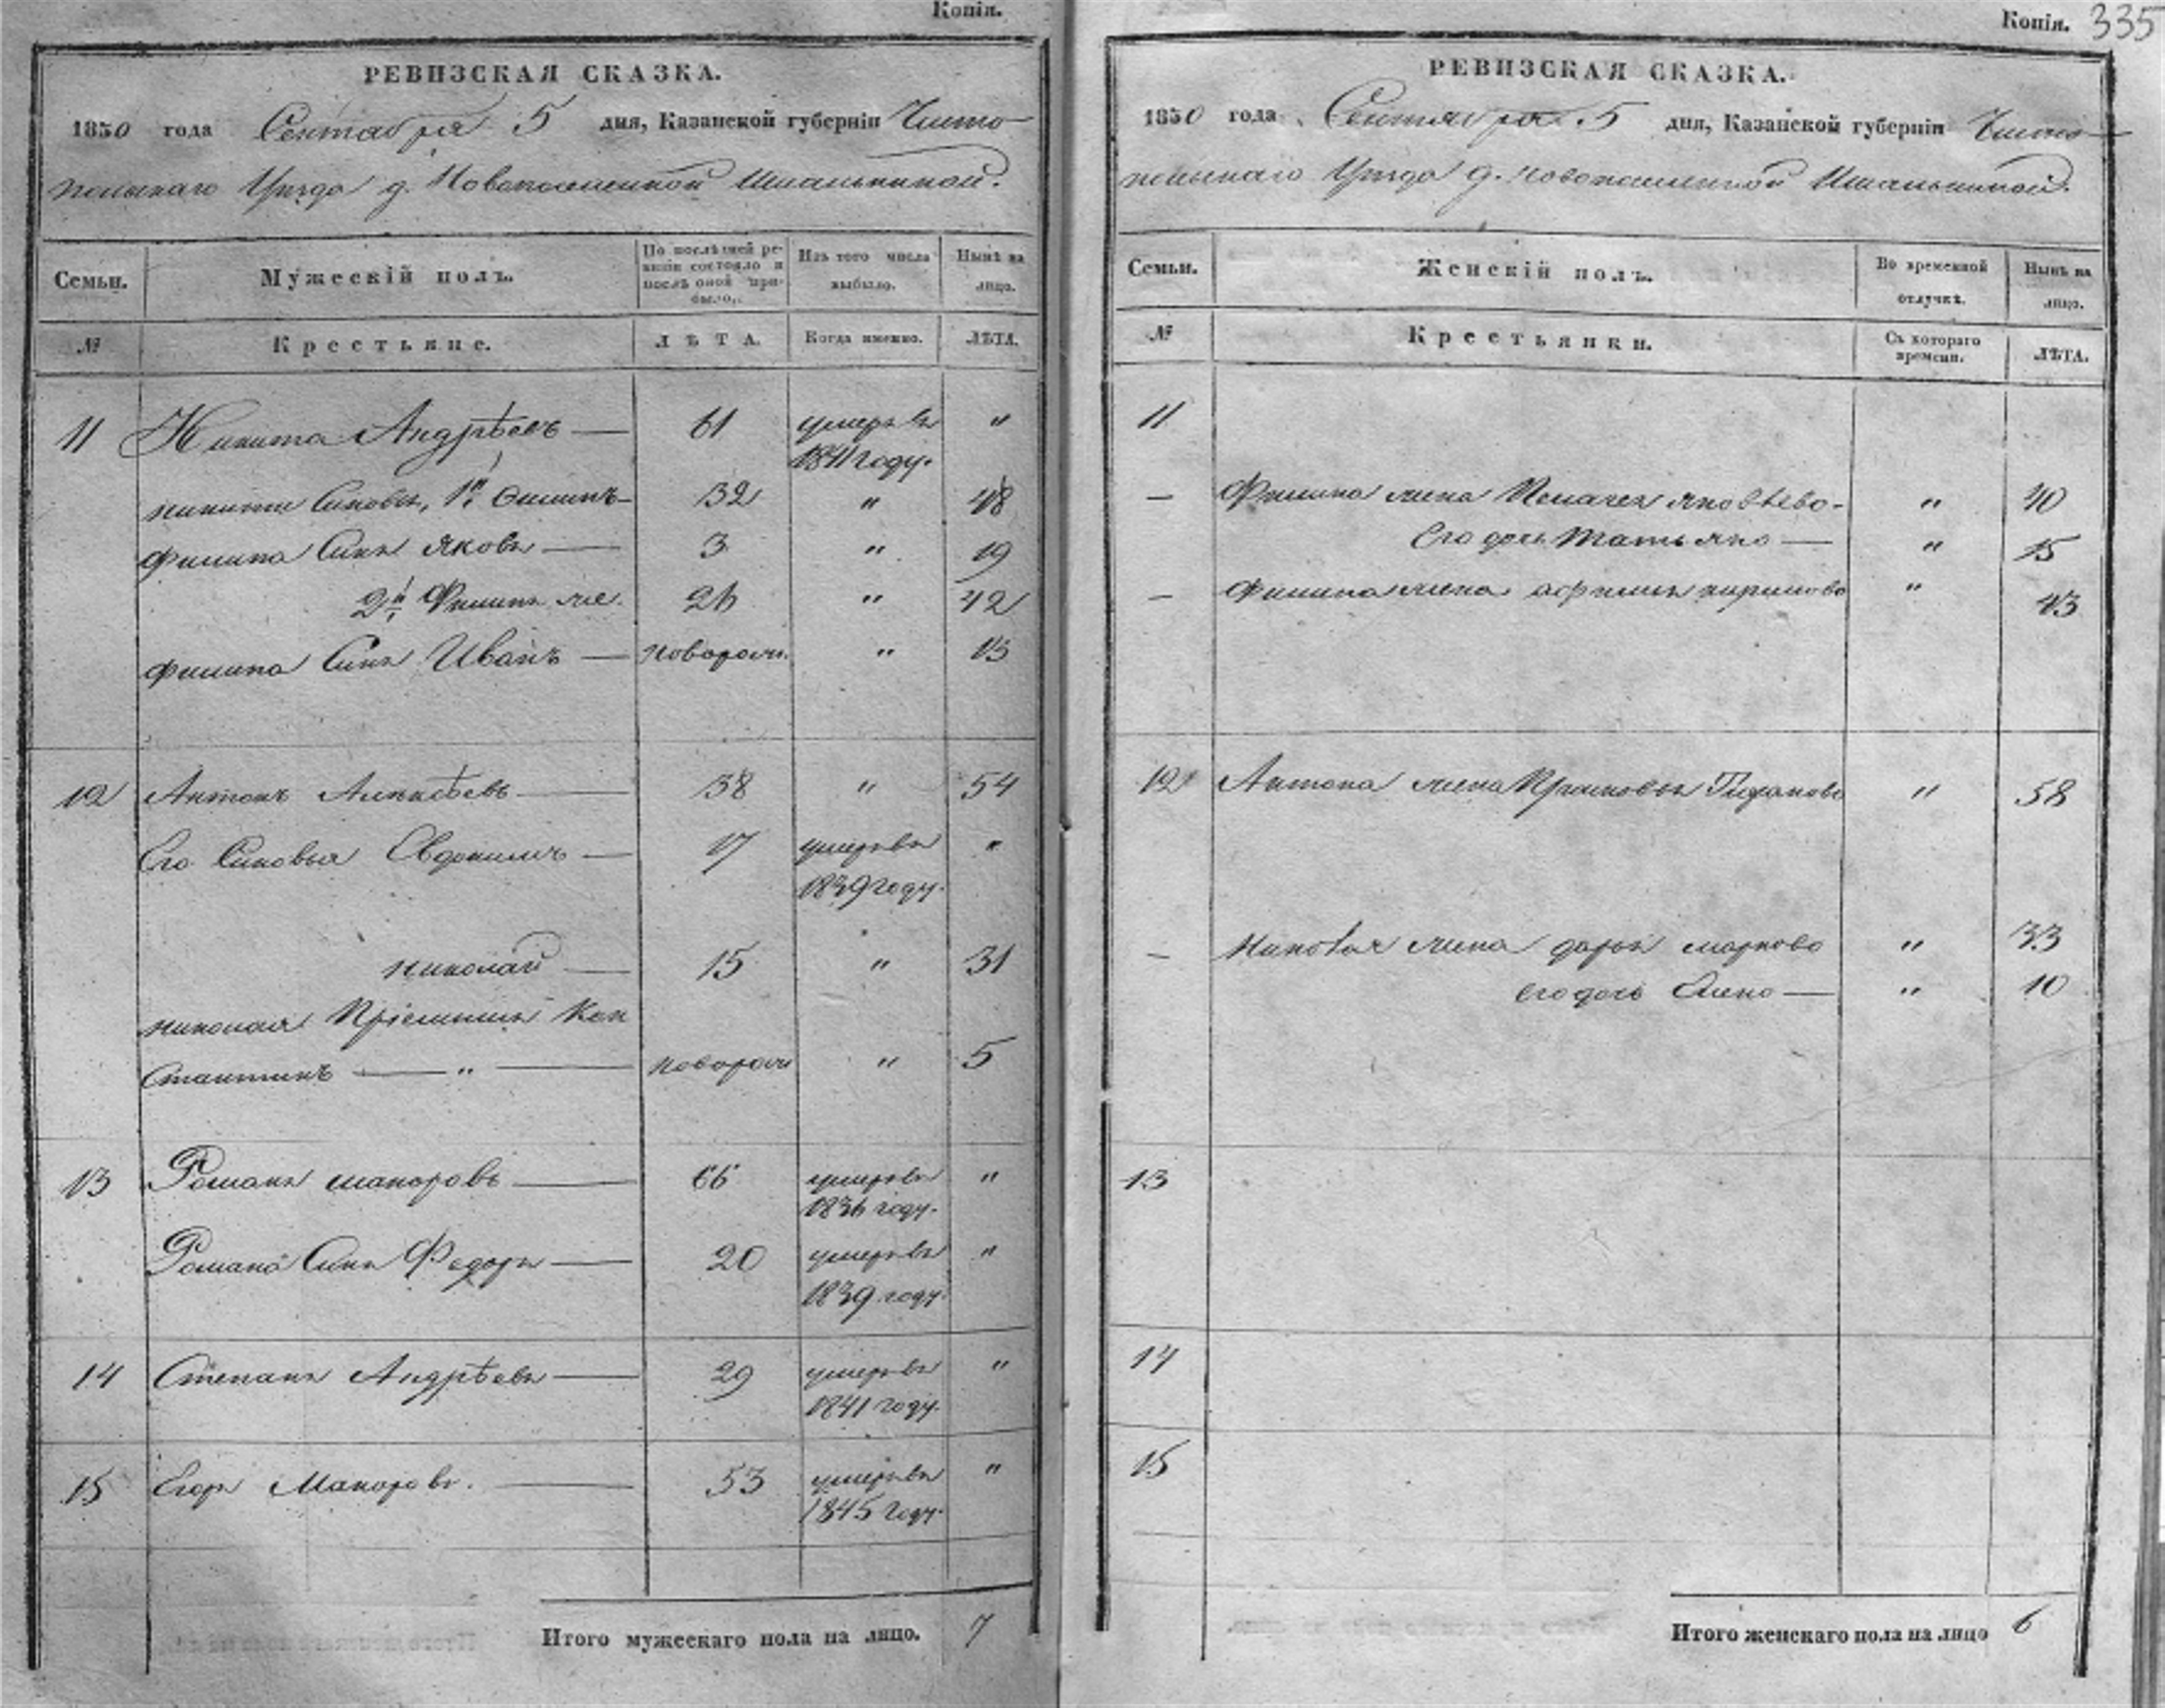 Копія.
РЕВИЗСКАЯ СКАЗКА.
1850 года Сентября 5 дня, Казанской губерніи Чисто
польскаго Уѣзда д. Новопоселенной Ишалькиной.
Семьи.
Мужескій полъ.
По послѣдней ре-
визіи состояло и
послѣ оной при-
было.
Изъ того числа
выбыло.
Нынѣ на
лицо.
№
Крестьяне.
ЛѢТА.
Когда именно.
ЛѢТА.
11 Никита Андрѣевъ — 61 умеръ въ "
1841 году.
Никиты Сыновья, 1й — 32 " 48
Филипа Сынъ Яковъ — 3 " 19
2й Филипъ же 26 " 42
Филипа Сынъ Иванъ — новорож. " 15
12 Антонъ Алексѣевъ — 38 " 54
Его Сыновья Евдокимъ — 17 умеръ въ "
1839 году.
Николай — 15 " 31
Николая Пріемышъ Кон
стантинъ — " — новорож " 5
13 Романъ Макаровъ — 66 умеръ въ "
1836 году.
Романа Сынъ Федоръ — 20 умеръ въ "
1839 году.
14 Степанъ Андрѣевъ — 29 умеръ въ "
1841 году.
15 Егоръ Макаровъ. — 53 умеръ въ "
1845 году.
Итого мужескаго пола на лицо. 7
Копія. 335
РЕВИЗСКАЯ СКАЗКА.
1850 года Сентября 5 дня, Казанской губерніи Чисто
польскаго Уѣзда д. Новопоселенной Ишалькиной.
Семьи.
Женскій полъ.
Во временной
отлучкѣ.
Нынѣ на
лицо.
№
Крестьянки.
Съ котораго
времени.
ЛѢТА.
11
— Филипа жена Пелагея Яковлева - " 40
Его дочь Татьяна — " 15
— Филипа жена " 43
12 Антона жена Прасковья " 58
— жена Дарья Маркова " 33
его дочь Елена — " 10
13
14
15
Итого женскаго пола на лицо 6